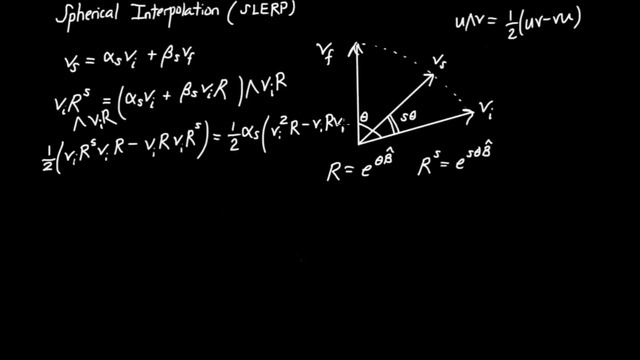 Spherical Interpolation (SLERP)
u∧v = 1/2(uv−vu)
v_s = α_s v_i + β_s v_f
v_i R^s = (α_s v_i + β_s v_i R) ∧ v_i R
∧ v_i R
1/2(v_i R^s v_i R − v_i R v_i R^s) = 1/2 α_s(v_i^2 R − v_i R v_i
v_f
v_s
v_i
θ
sθ
R = e^{θB̂}
R^s = e^{sθB̂}